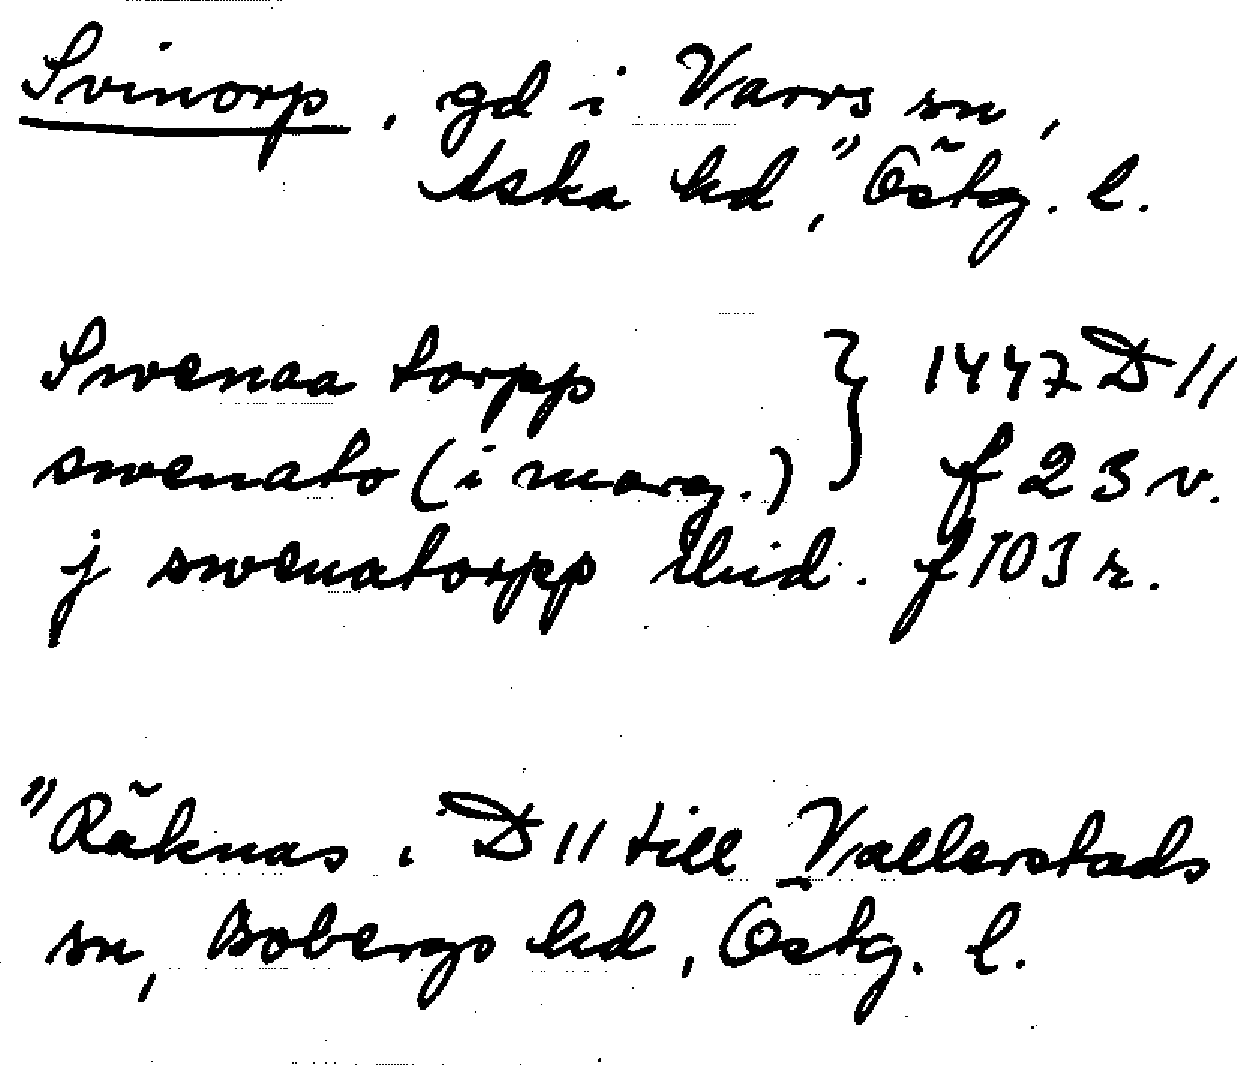 Svinorp, gd i Varvs sn,
Aska hd, Östg. l.
Swenaa torpp } 1447 D 11
swenato (i marg.) f 23 v.
j swenatorpp ibid. f 103 r.
"Räknas i D 11 till Vallerstads
sn, Bobergs hd, Östg. l.